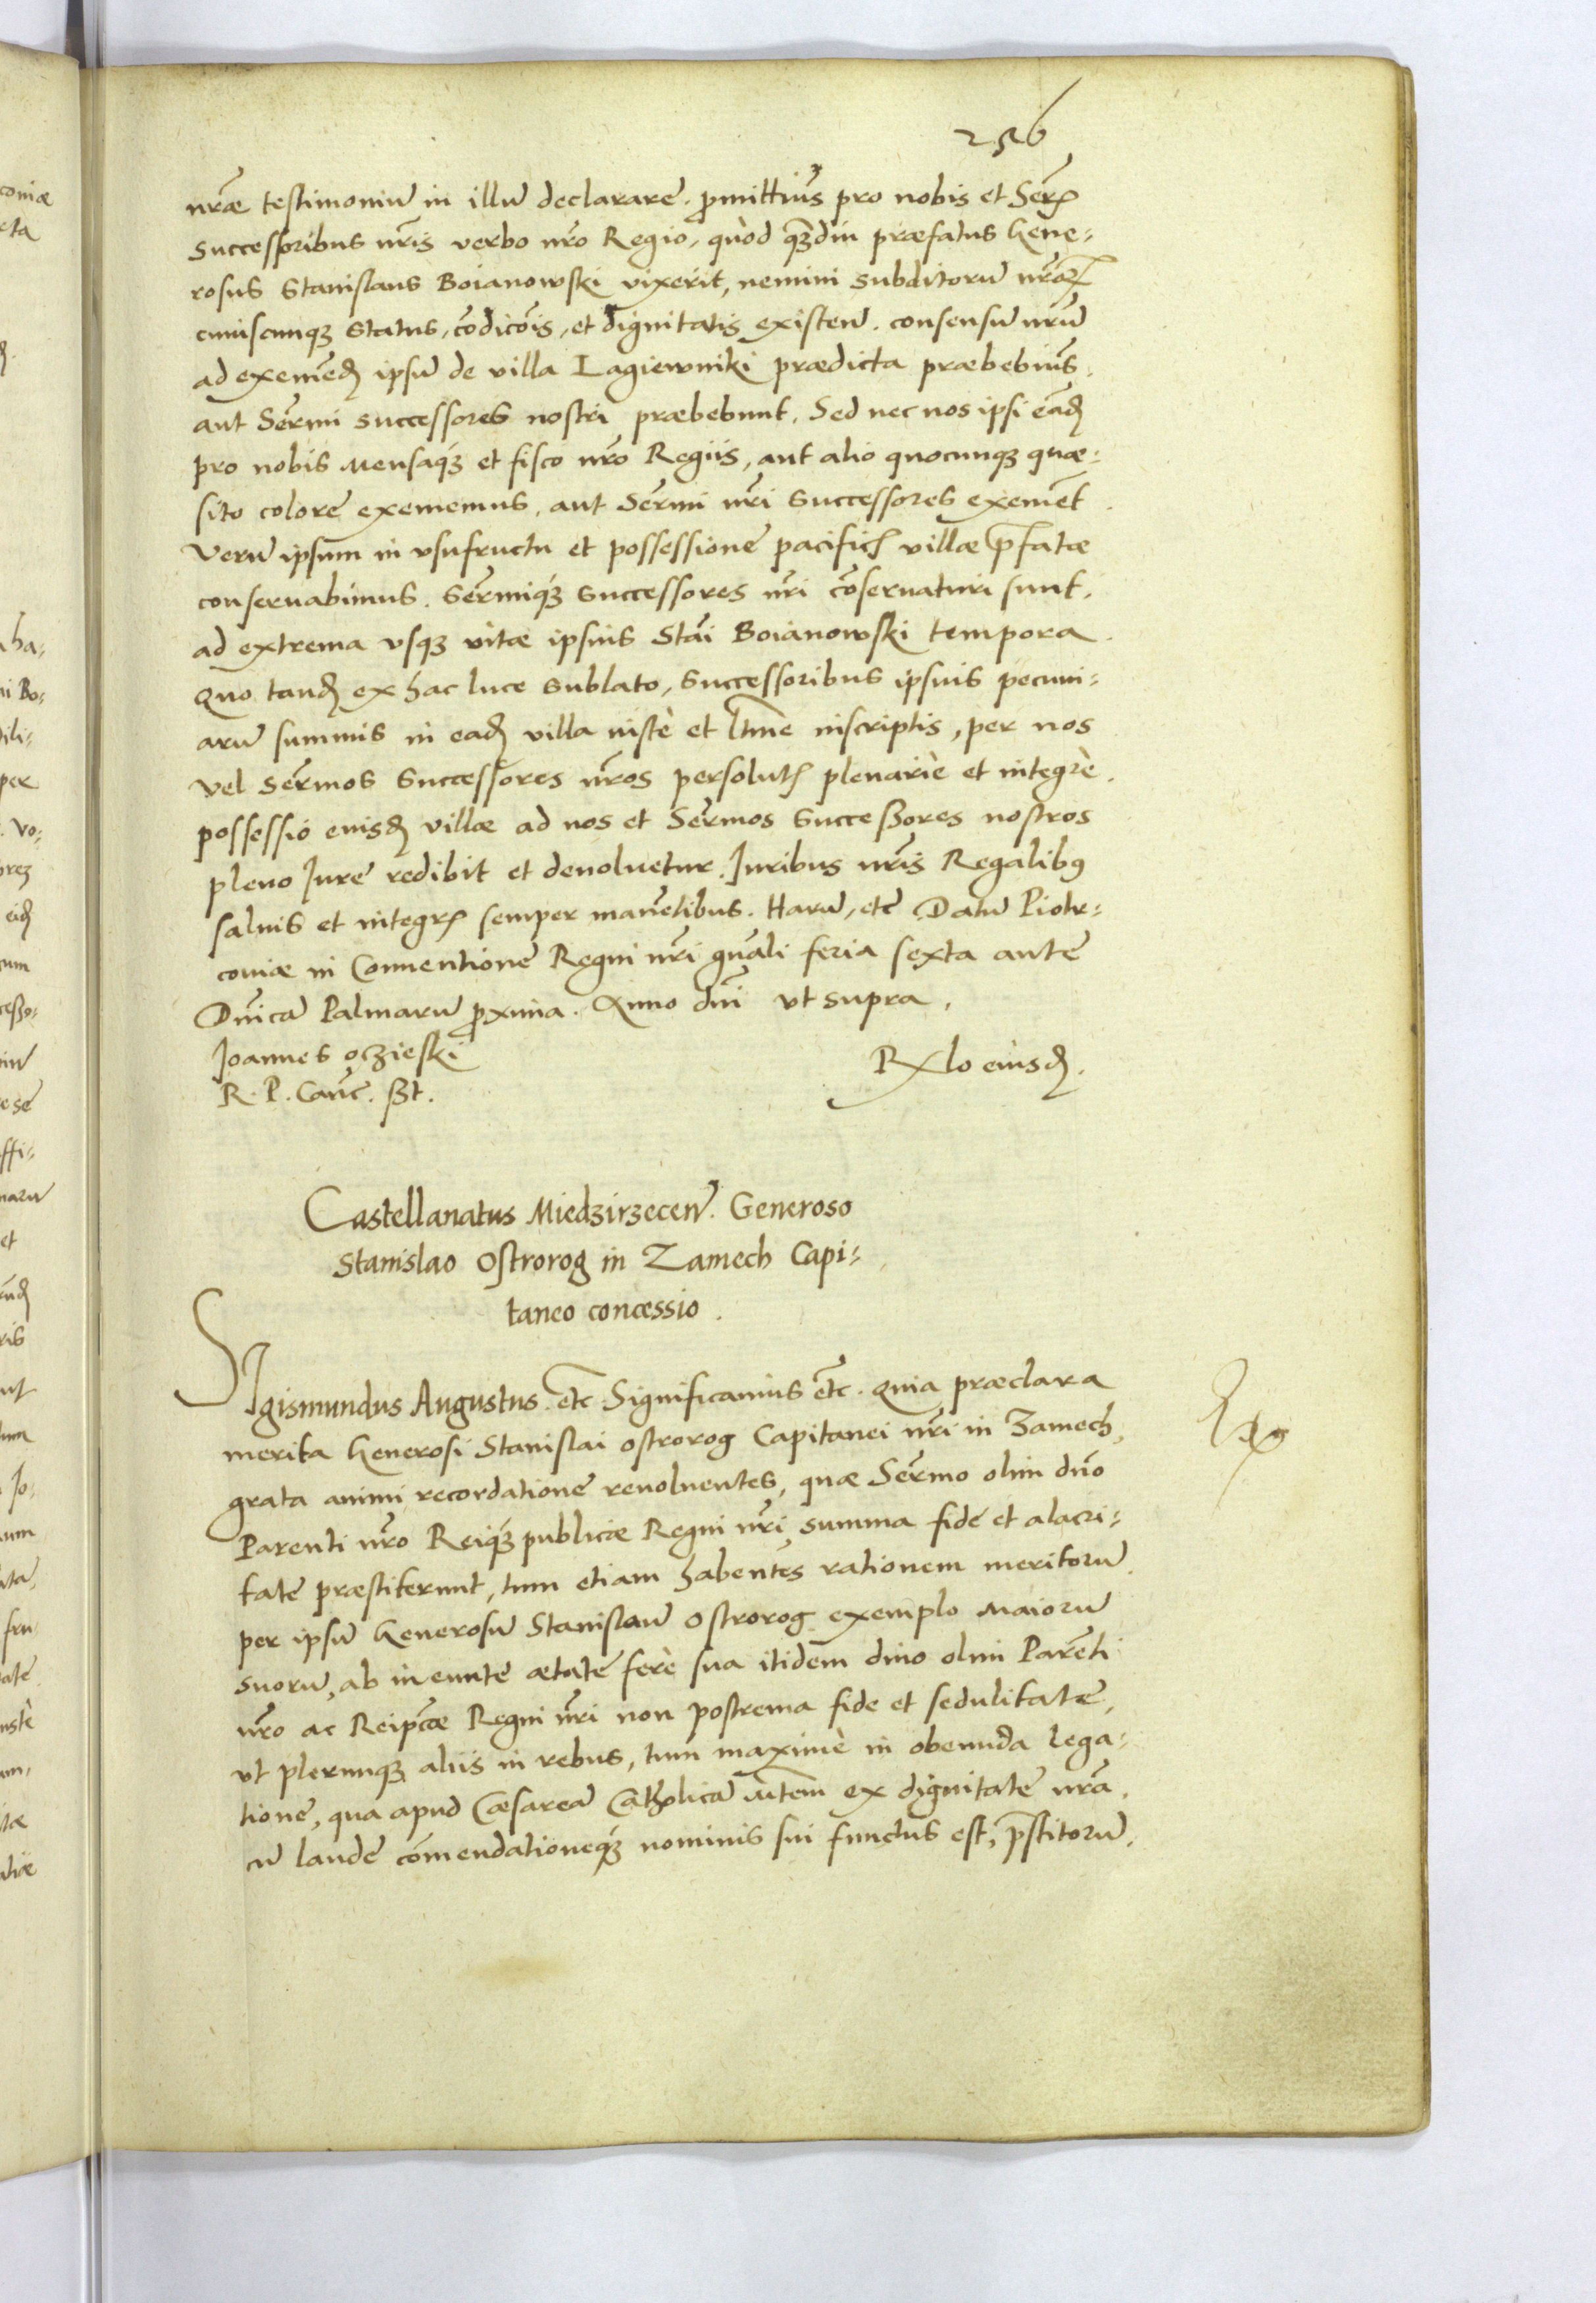 256
nr̃ae testimoniũ in illũ declarare. ꝓmittim̃s pro nobis et Serꝝ
successoribus nr̃is verbo nr̃o Regio, quòd qᷓdiu præfatus Gene-
rosus Stanislaus Boianowski vixerit, nemini subditorũ nr̃oꝝ
cuiuscunqꝫ status, cõdicõis, et dignitatis existeñ. consensũ nr̃um
ad eximẽdũ ipsũ de villa Lagiewniki prædicta præbebim̃s,
aut Serm̃i successores nostri præbebunt. Sed nec nos ipsi eãdẽ
pro nobis Mensaqꝫ et fisco nr̃o Regiis, aut alio quocunqꝫ quæ-
sito colore exememus, aut Serm̃i nr̃i Successores exemẽt.
Verũ ipsum in vsufructu et possessione pacifica villæ p̃fatæ
conseruabimus. Serm̃iqꝫ Successores nr̃i cõseruaturi sunt,
ad extrema vsqꝫ vitæ ipsius Stãi Boianowski tempora.
Quo tandẽ ex hac luce sublato, Successoribus ipsuis pecuni-
arũ summis in eadẽ villa iustè et lt̃ime inscriptis, per nos
vel serm̃os Successores nr̃os persolutis plenariè et integrè.
possessio eiusdẽ villæ ad nos et Serm̃os Successores nostros
pleno Iure redibit et deuoluetur. Iuribus nr̃is Regalibꝰ
saluis et integris semper manẽtibus. Harũ, etc̃ Datũ Piotr-
couiæ in Conuentione Regni nr̃i gñali feria sexta ante
Dñicã Palmarũ ꝓxima. Anno dñi vt supra.
Joannes oczieski
R. P. Canc̃. sst.
Rẽlo eiusdẽ.
Castellanatus Miedzirzeceñ. Generoso
Stanislao Ostrorog in Zamech Capi-
taneo concessio.
SIgismundus Augustus. etc̃ Significamus etc̃. Quia præclara
merita Generosi Stanislai Ostrorog Capitanei nr̃i in Zamech,
grata animi recordatione reuoluentes, quæ Serm̃o olim dño
Parenti nr̃o Reiqꝫ publicæ Regni nr̃i summa fide et alacri-
tate præstiterunt, tum etiam habentes rationem meritorũ
per ipsũ Generosũ Stanislaũ Ostrorog exemplo Maiorũ
suorũ, ab in eunte ætate ferè sua itidem diuo olim Parẽti
nr̃o ac Reipc̃æ Regni nr̃i non postrema fide et sedulitate,
vt plerunqꝫ aliis in rebus, tum maximè in obeunda lega-
tione, qua apud Cæsareã Catholicã Mtem̃ ex dignitate nr̃a,
cũ laude cõmendationeqꝫ nominis sui functus est, p̃stitorũ,